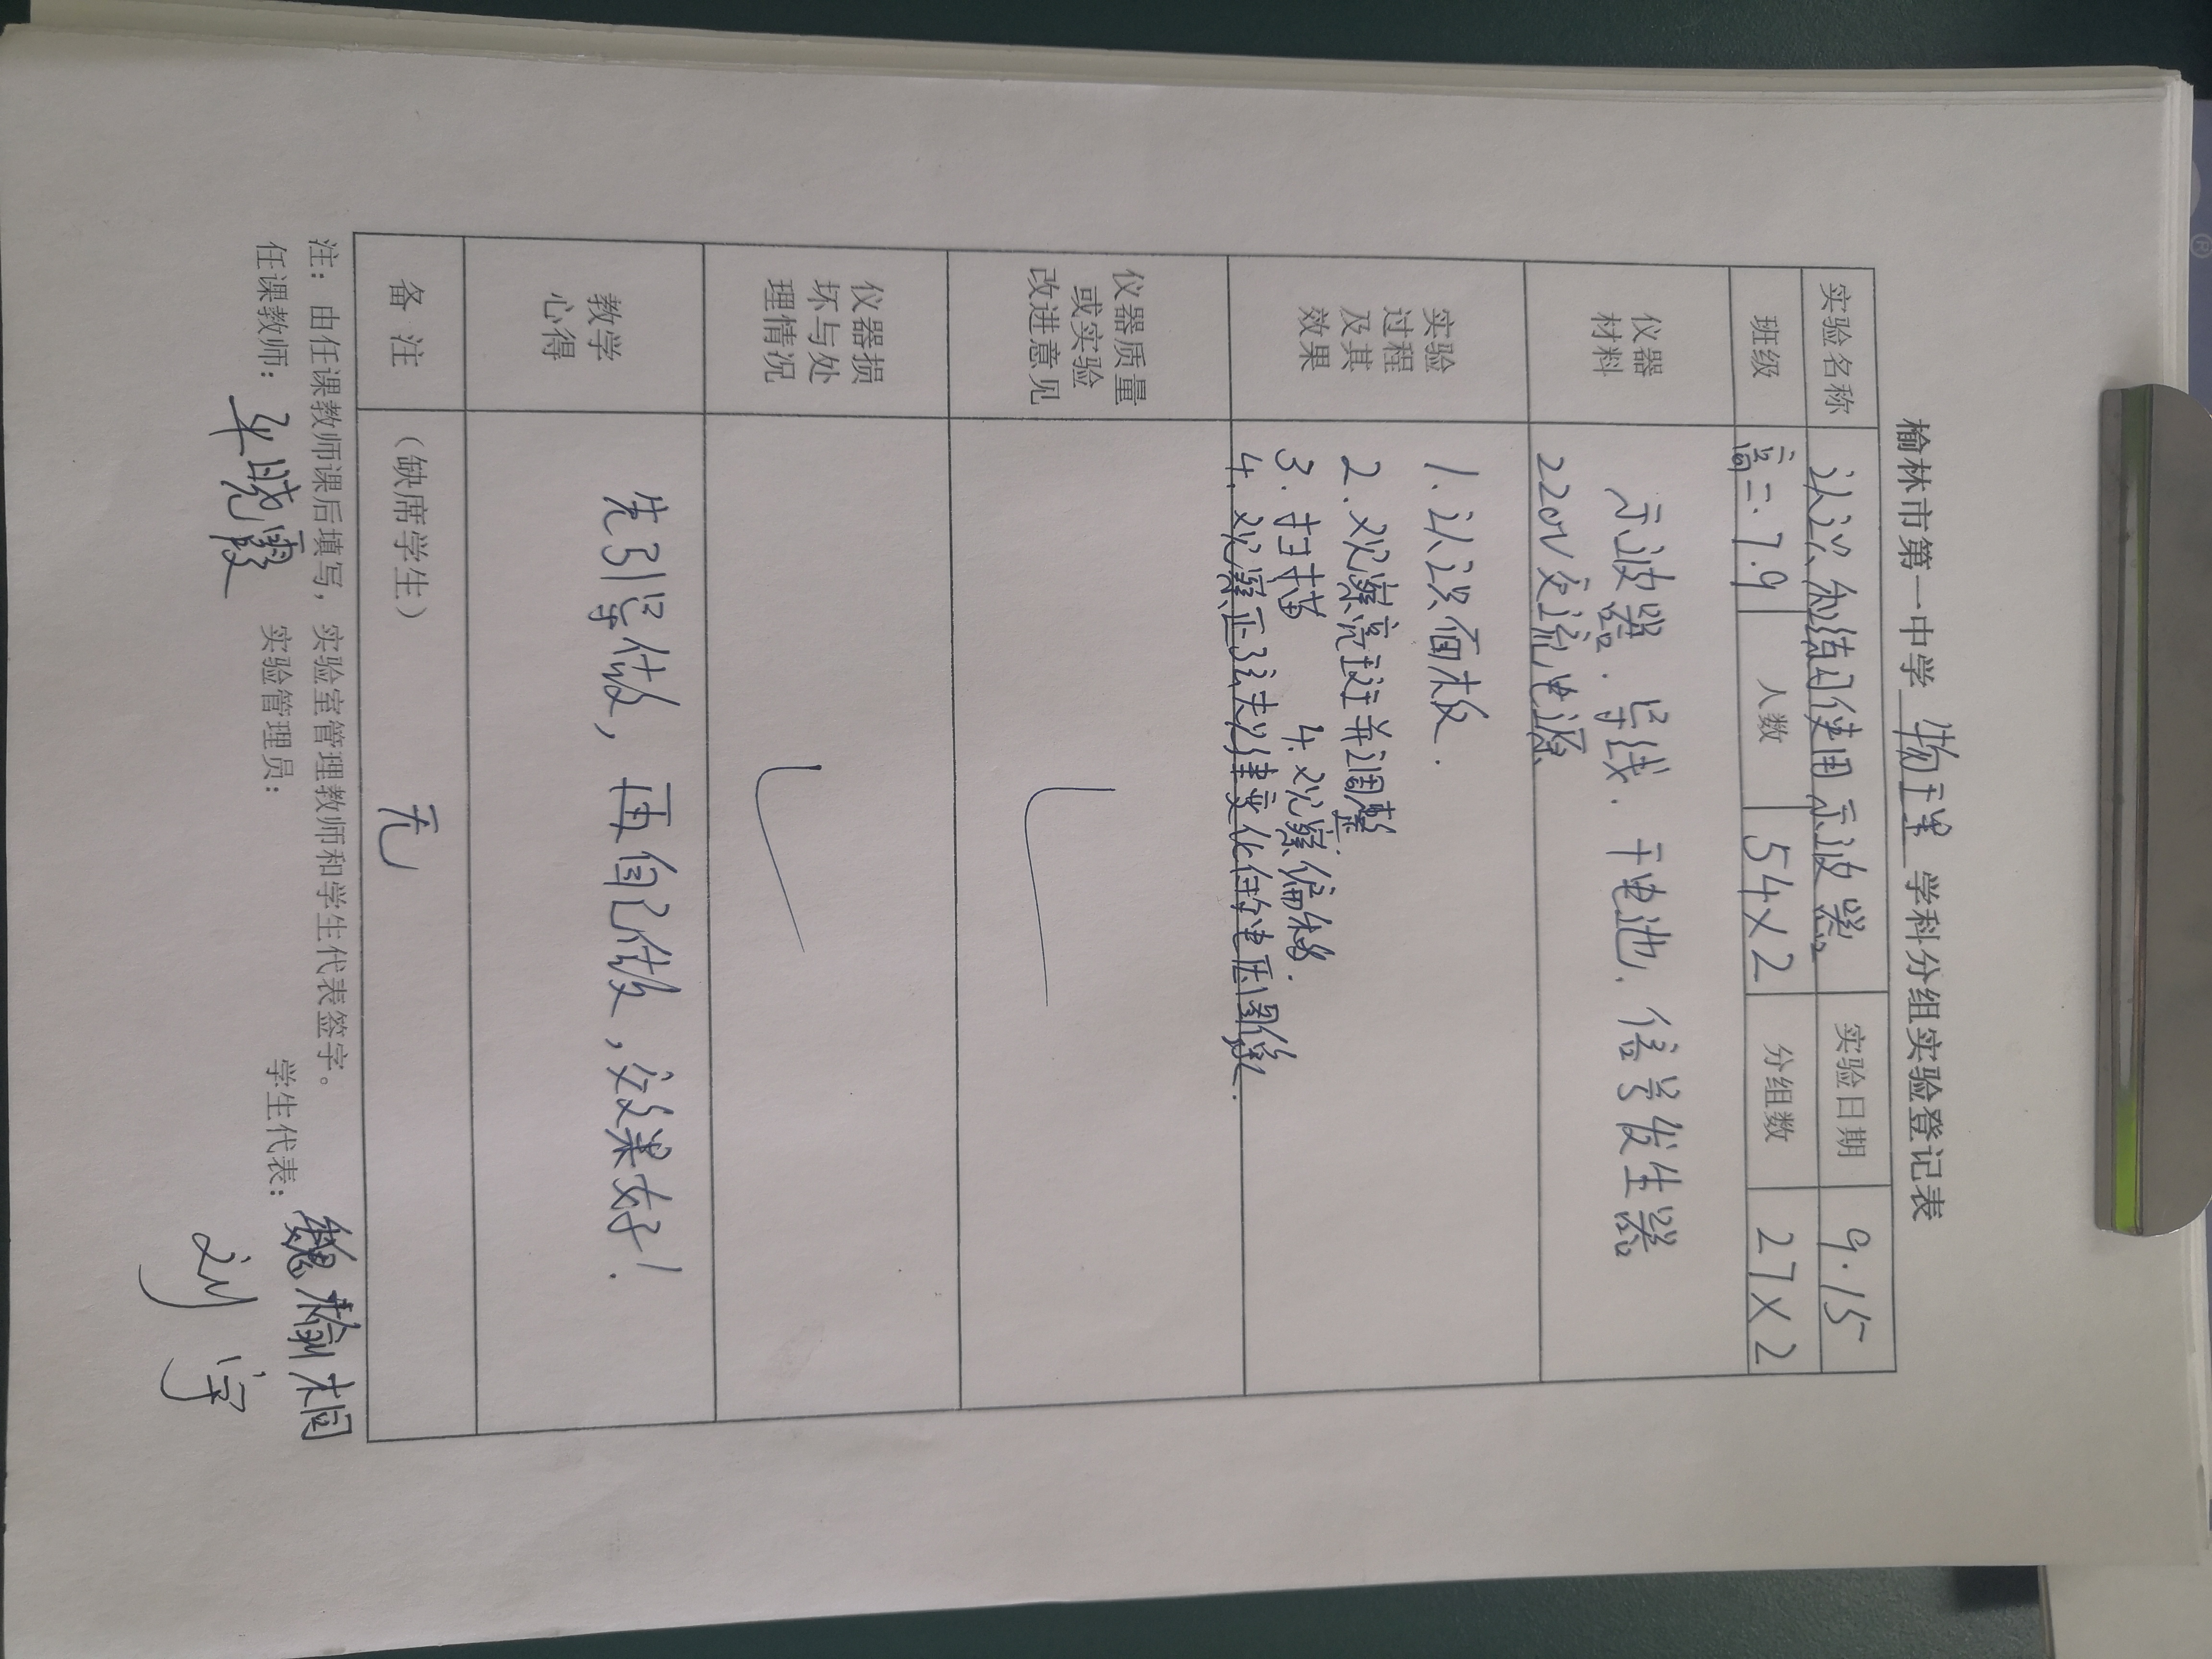 榆林市第一中学 物理 学科分组实验登记表
实验名称 认识和练习使用示波器 实验日期 9.15
班级 高二.7.9 人数 54×2 分组数 27×2
仪器材料 示波器、导线、干电池、信号发生器
220V交流电源
实验过程及其效果 1.认识面板.
2.观察亮斑并调整.
3.扫描 4.观察偏移.
4.观察正弦规律变化的电压图像.
仪器质量或实验改进意见
仪器损坏与处理情况
教学心得 先引导做，再自己做，效果好!
备注 （缺席学生） 无
注：由任课教师课后填写，实验室管理教师和学生代表签字。
任课教师： 晓霞 实验管理员： 学生代表： 魏榆桐
刘宇